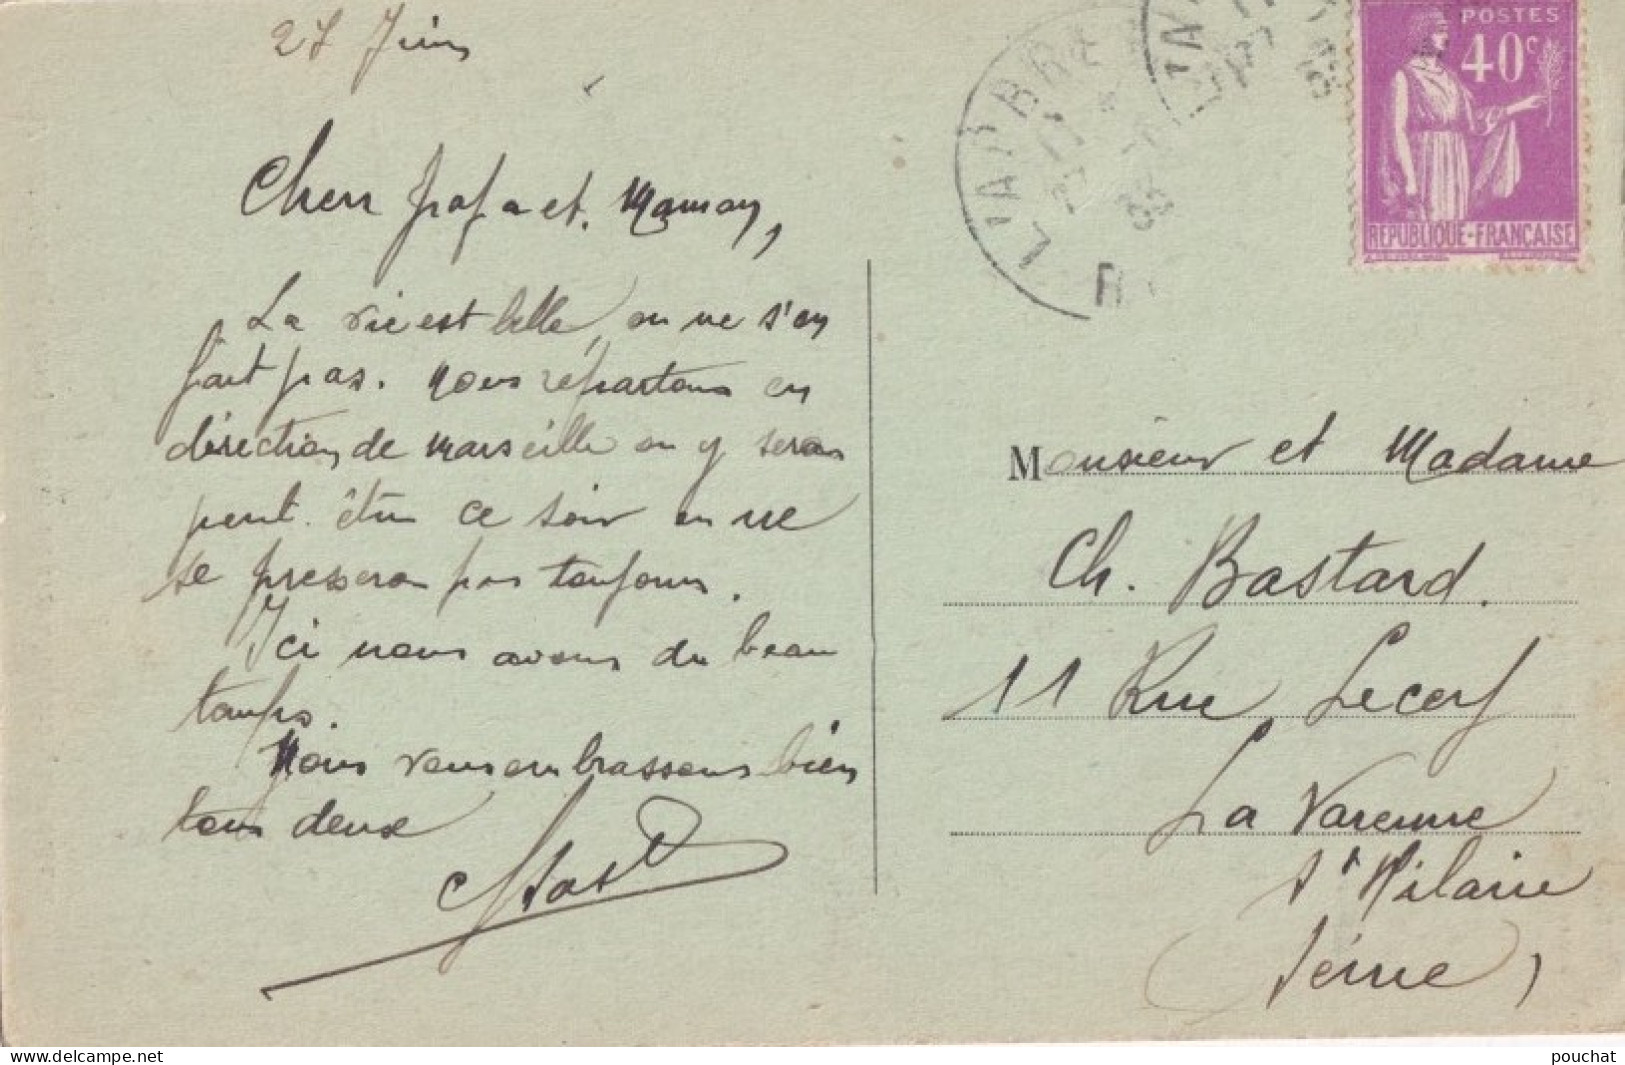 27 Juin
Chers papa et. Maman,
La vie est belle, on ne s'en
fait pas. Nous répartons en
direction de Marseille on y seras
peut. être ce soir on ne
se presseron pas toujours.
Ici nous avons du beau
temps.
Nous vous embrassons bien
tous deux
POSTES
40c
REPUBLIQUE-FRANÇAISE
L'ARBRE
35
Monsieur et Madame
Ch. Bastard.
11 Rue Lecerf
La Varenne
St Hilaire
(Seine)
www.delcampe.net
pouchat